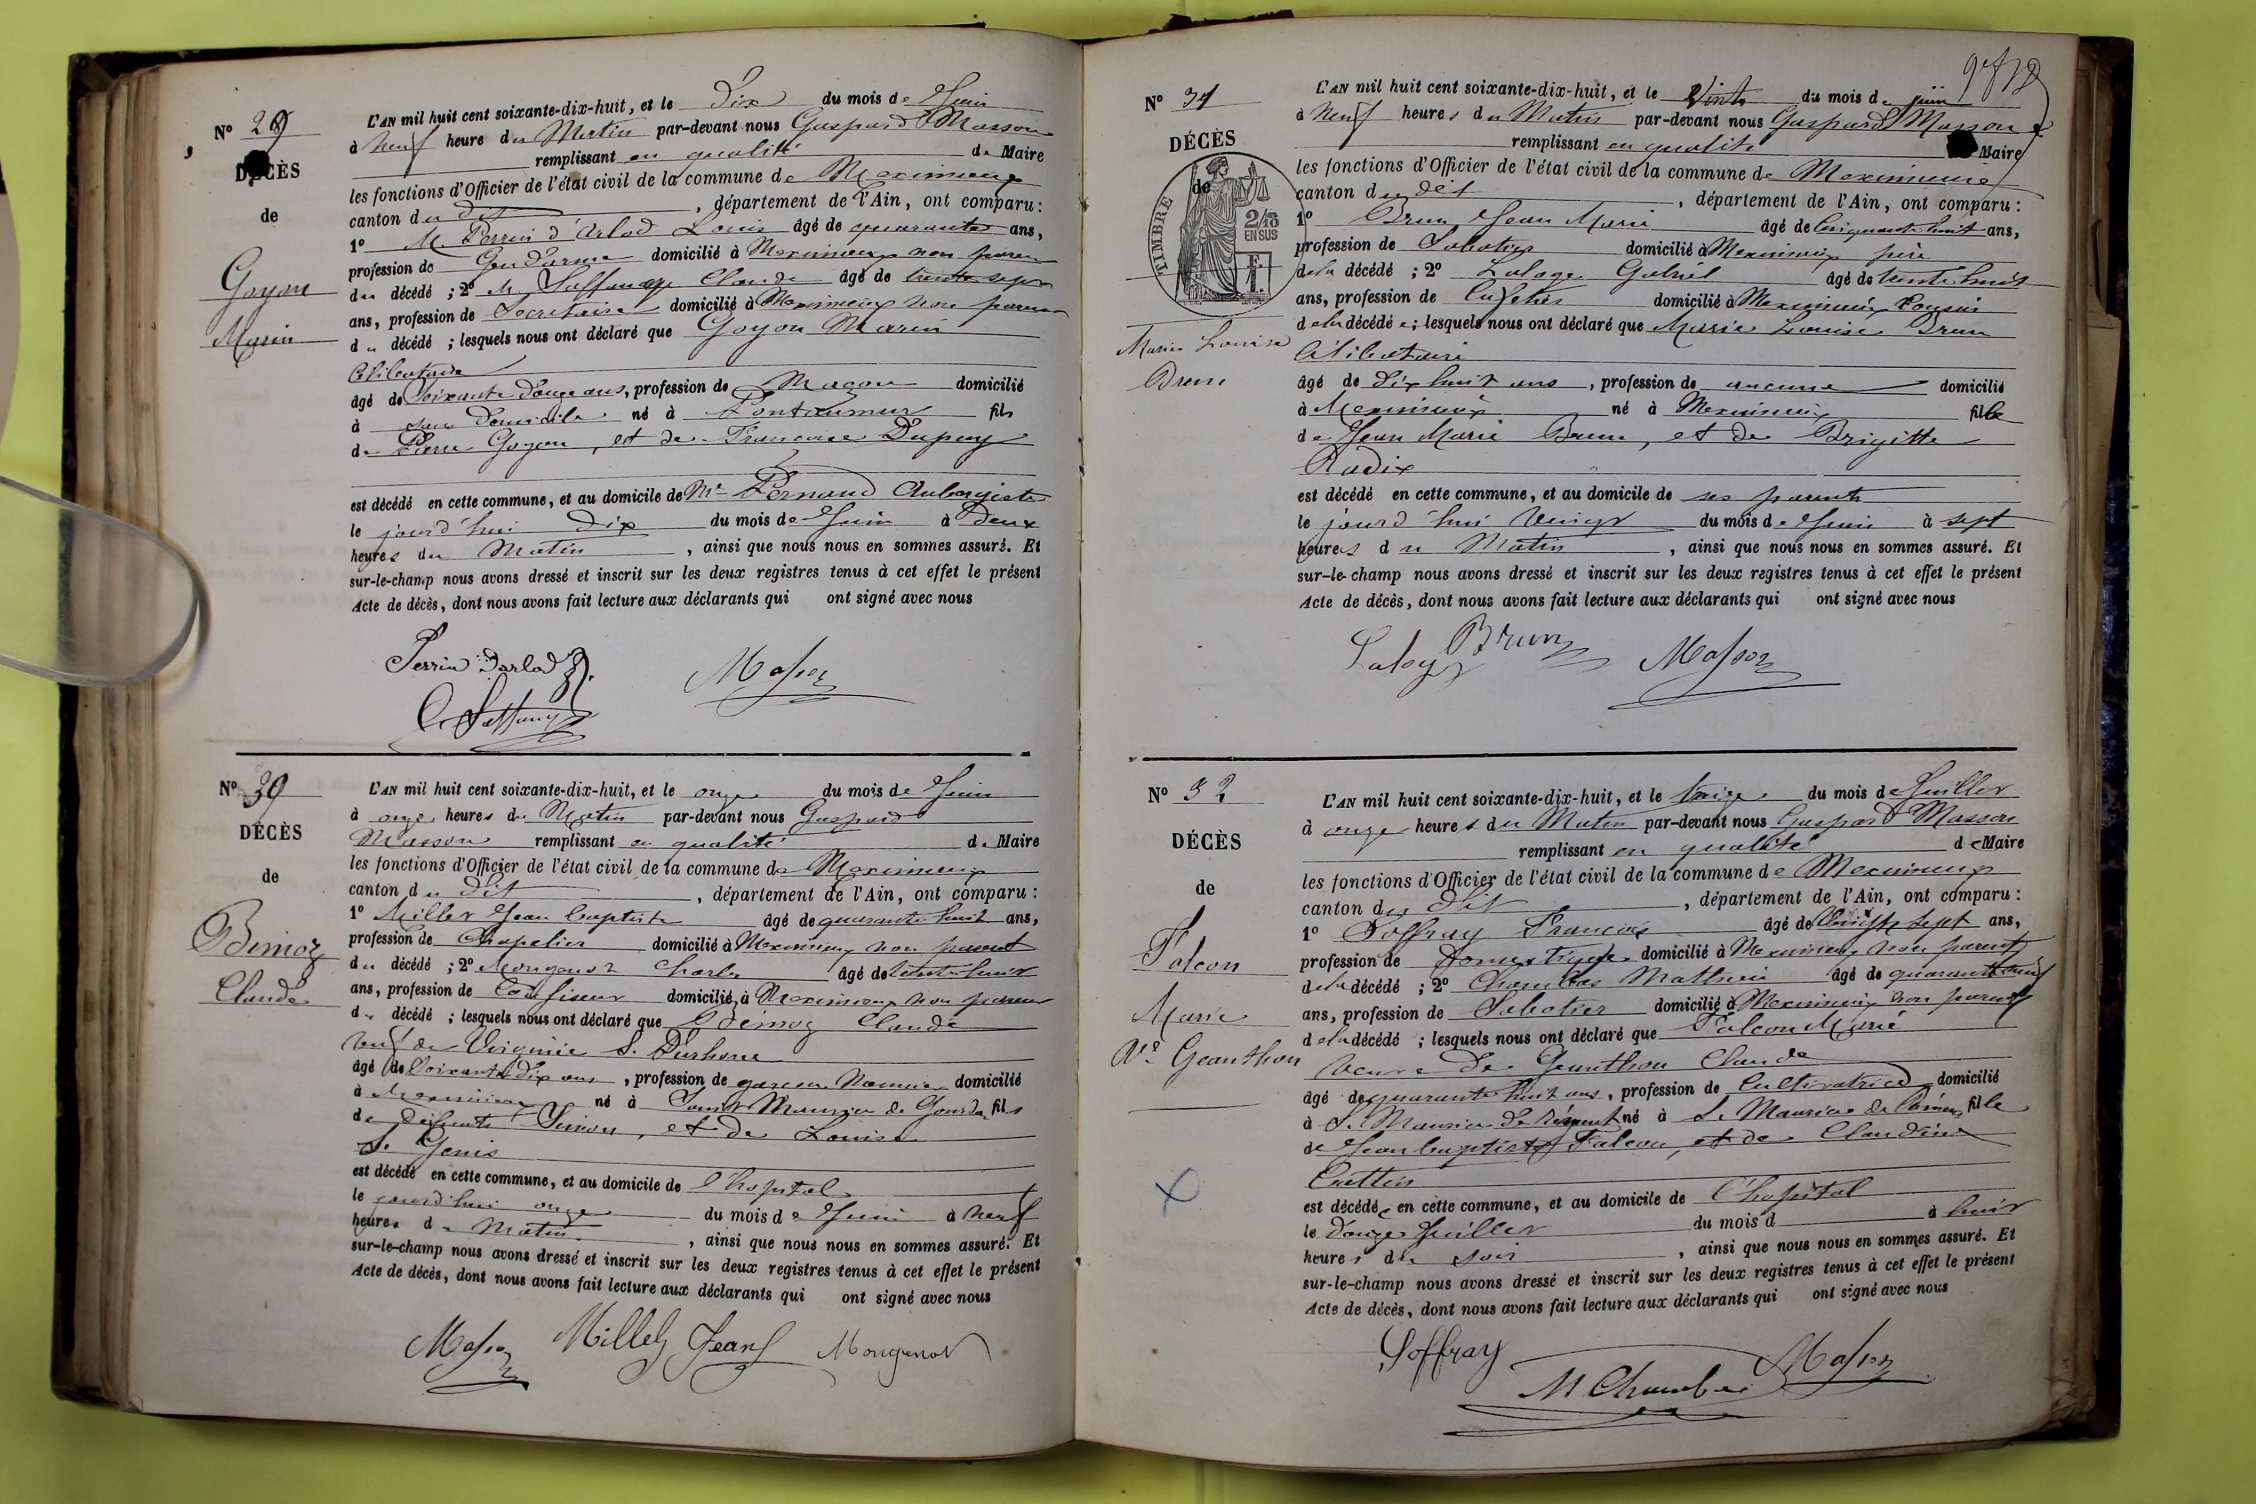 Nº 29
DÉCÈS
de
Goyon
Marin
L'AN mil huit cent soixante-dix-huit, et le Dix du mois de Juin
à Neuf heure du Matin par-devant nous Gaspard Masson
remplissant en qualité de Maire
les fonctions d'Officier de l'état civil de la commune de Meximieux
canton du dit, département de l'Ain, ont comparu :
1º M. Perrin d'Arlod Louis âgé de quarante ans,
profession de Gendarme domicilié à Meximieux non parent
du décédé ; 2º M. Claude âgé de trente sept
ans, profession de Secretaire domicilié à Meximieux non parent
du décédé ; lesquels nous ont déclaré que Goyon Marin
Célibataire
âgé de Soixante Douze ans, profession de Maçon domicilié
à sans Domicile né à Pontaumur fils
de Pierre Goyon, et de Francoise Dupuy
est décédé en cette commune, et au domicile de Mr Pernaud Aubergiste
le jourd'hui dix du mois de Juin à Deux
heures du Matin, ainsi que nous nous en sommes assuré. Et
sur-le-champ nous avons dressé et inscrit sur les deux registres tenus à cet effet le présent
Acte de décès, dont nous avons fait lecture aux déclarants qui ont signé avec nous
Perrin Darlod
Masson
Nº 30
DÉCÈS
de
Bemoz
Claude
L'AN mil huit cent soixante-dix-huit, et le onze du mois de Juin
à onze heures du Matin par-devant nous Gaspard
Masson remplissant en qualité de Maire
les fonctions d'Officier de l'état civil de la commune de Meximieux
canton du dit, département de l'Ain, ont comparu :
1º Millet Jean Baptiste âgé de quarante huit ans,
profession de Chapelier domicilié à Meximieux non parent
du décédé ; 2º Mongenot Charles âgé de trente huit
ans, profession de Confiseur domicilié à Meximieux non parent
du décédé ; lesquels nous ont déclaré que Bémoz Claude
veuf de Virginie
âgé de Soixante Dix ans, profession de garcon domicilié
à Meximieux né à Saint Maurice de Gourdan fils
de défunts Simon, et de Louise
St Genis
est décédé en cette commune, et au domicile de l'hopital
le jourd'hui onze du mois de Juin à Neuf
heures du Matin, ainsi que nous nous en sommes assuré. Et
sur-le-champ nous avons dressé et inscrit sur les deux registres tenus à cet effet le présent
Acte de décès, dont nous avons fait lecture aux déclarants qui ont signé avec nous
Masson Millet Jean Mongenot
Nº 31
DÉCÈS
de
TIMBRE
2/10
EN SUS
Marie Louise
Brun
L'AN mil huit cent soixante-dix-huit, et le Vingt du mois de juin
à Neuf heures du Matin par-devant nous Gaspard Masson
remplissant en qualité Maire
les fonctions d'Officier de l'état civil de la commune de Meximieux
canton du dit, département de l'Ain, ont comparu :
1º Brun Jean Marie âgé de Cinquante huit ans,
profession de Sabotier domicilié à Meximieux père
de la décédé ; 2º Laloge Gabriel âgé de trente huit
ans, profession de Cafetier domicilié à Meximieux Cousin
de la décédée ; lesquels nous ont déclaré que Marie Louise Brun
Célibataire
âgé de Dix huit ans, profession de aucune domicilié
à Meximieux né à Meximieux fille
de Jean Marie Brun, et de Brigitte
Radix
est décédé en cette commune, et au domicile de ses parents
le jourd'hui Vingt du mois de Juin à sept
heures du Matin, ainsi que nous nous en sommes assuré. Et
sur-le-champ nous avons dressé et inscrit sur les deux registres tenus à cet effet le présent
Acte de décès, dont nous avons fait lecture aux déclarants qui ont signé avec nous
Brun
Masson
Nº 32
DÉCÈS
de
Falcon
Marie
Ve Geanthon
L'AN mil huit cent soixante-dix-huit, et le treize du mois de Juillet
à onze heures du Matin par-devant nous Gaspard Masson
remplissant en qualité de Maire
les fonctions d'Officier de l'état civil de la commune de Meximieux
canton du dit, département de l'Ain, ont comparu :
1º Soffray Francois âgé de sept ans,
profession de Domestique domicilié à Meximieux non parent
de la décédé ; 2º Chambas Mathieu âgé de quarante neuf
ans, profession de Sabotier domicilié à Meximieux non parent
de la décédé ; lesquels nous ont déclaré que Falcon Marie
veuve de Geanthon Claude
âgé de quarante huit ans, profession de Cultivatrice domicilié
à St Maurice de Rémens né à St Maurice de Rémens fille
de Jean baptiste Falcon, et de Claudine
est décédée en cette commune, et au domicile de l'hopital
le Douze Juillet du mois d à huit
heures du soir, ainsi que nous nous en sommes assuré. Et
sur-le-champ nous avons dressé et inscrit sur les deux registres tenus à cet effet le présent
Acte de décès, dont nous avons fait lecture aux déclarants qui ont signé avec nous
Soffray
M Masson